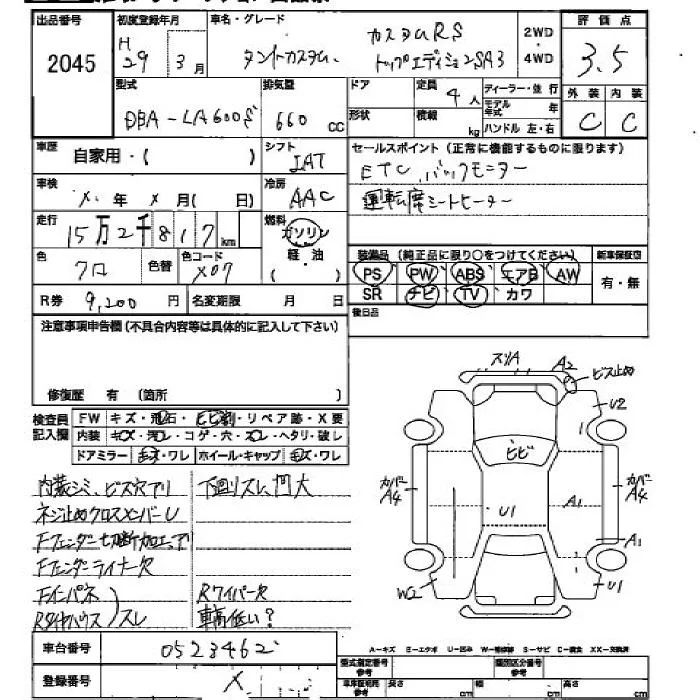 出品番号
2045
初度登録年月
H 29 3月
車名・グレード
タントカスタム、
カスタムRS
トップエディションSA3
2WD
・
4WD
評価点
3.5
外装 内装
C C
型式
DBA-LA600S
排気量
660 cc
ドア
形状
定員
4人
積載
kg
ディーラー・並行
モデル年式 年
ハンドル 左・右
車歴
自家用・( )
シフト
IAT
セールスポイント(正常に機能するものに限ります)
ETC、バックモニター
運転席シートヒーター
車検
X年X月( 日)
冷房
AAC
走行
15万2千817km
燃料
ガソリン
軽・油
( )
色
クロ
色替
色コード
X07
装備品(純正品に限り○をつけてください)
PS PW ABS エアB AW
SR ナビ TV カワ
新車保証書
有・無
R券 9,200円
名変期限 月 日
後日品
注意事項申告欄(不具合内容等は具体的に記入して下さい)
修復歴 有(箇所 )
検査員記入欄
FW キズ・飛石・ヒビ割・リペア跡・X要
内装 キズ・汚レ・コゲ・穴・スレ・ヘタリ・破レ
ドアミラー キズ・ワレ ホイール・キャップ キズ・ワレ
内装シミ、ビス穴アリ
ネジ止めクロスメンバーレ
Fフェンダー切断加工
Fフェンダーライナー欠
Fインパネ
Rタイヤハウス
スレ
下廻リスレ、凹大
Rワイパー欠
車高低い?
スリA
A2
ビス止め
U2
カバー
A4
ヒビ
U1
A1
カバー
A4
A1
W2
U1
車台番号
0523462
登録番号
X
A−キズ E−エクボ U−凹み W−補修跡 S−サビ C−腐食 XX−交換済
型式指定番号
類別区分番号
車庫証明用参考
長さ cm
幅 cm
高さ cm